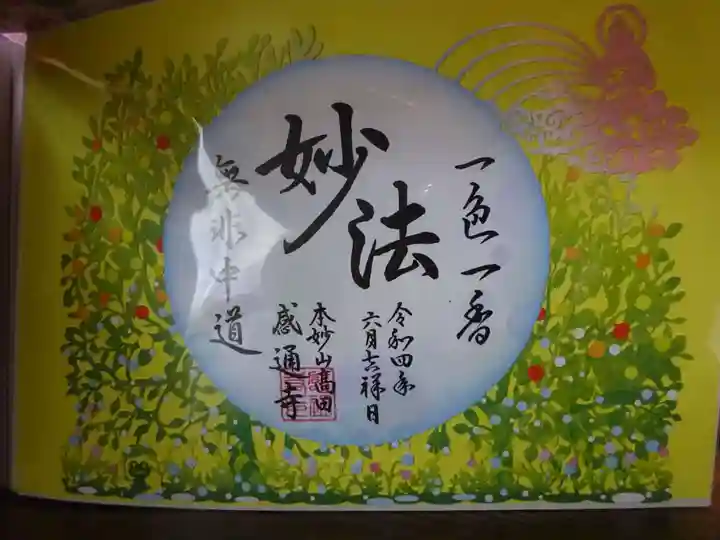 一色一香
妙法
無非中道
令和四年
六月吉祥日
本妙山高田
感通寺